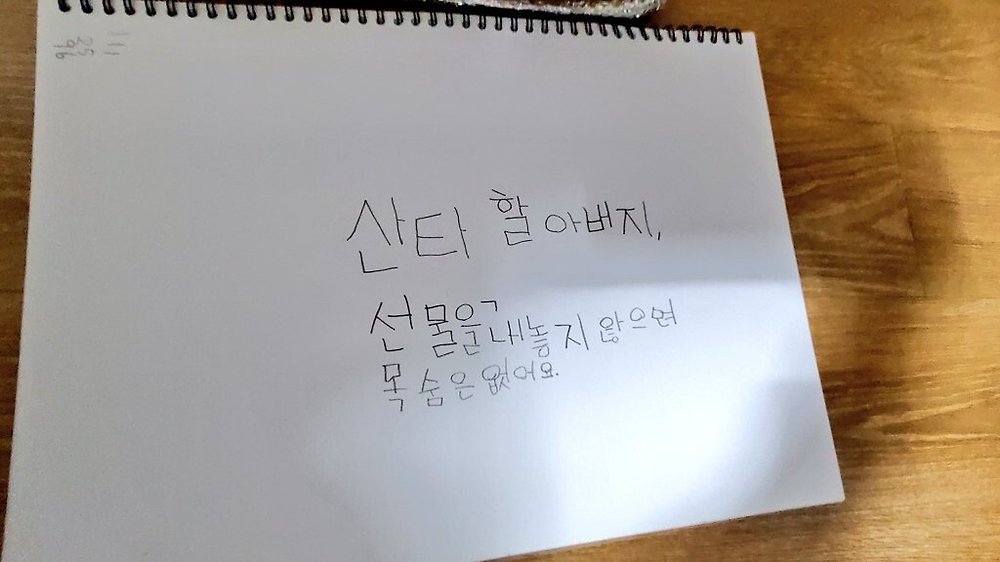 산타 할아버지,
선물을 내놓지 않으면
목숨은 없어요.